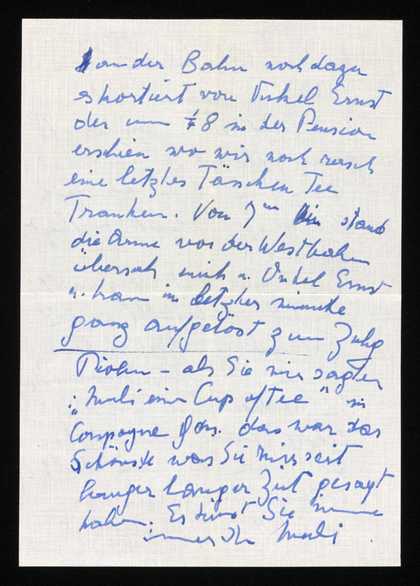 an der Bahn noch dazu
eskortiert von Onkel Ernst
der um 1/2 8 in der Pension
erschien wo wir noch rasch
eine letztes Tässchen Tee
Tranken. Von 7 stand
die Arme vor der Westbahn
übersah mich u. Onkel Ernst
u. kam in letzter minute
ganz aufgelöst zum Zuhg
– als Sie mir sagten
"Muli eine Cup of Tee" in
Compagne das war das
Schönste was Sie mir seit
langer langer Zeit gesagt
haben. Es Sie
immer Ihr Muli